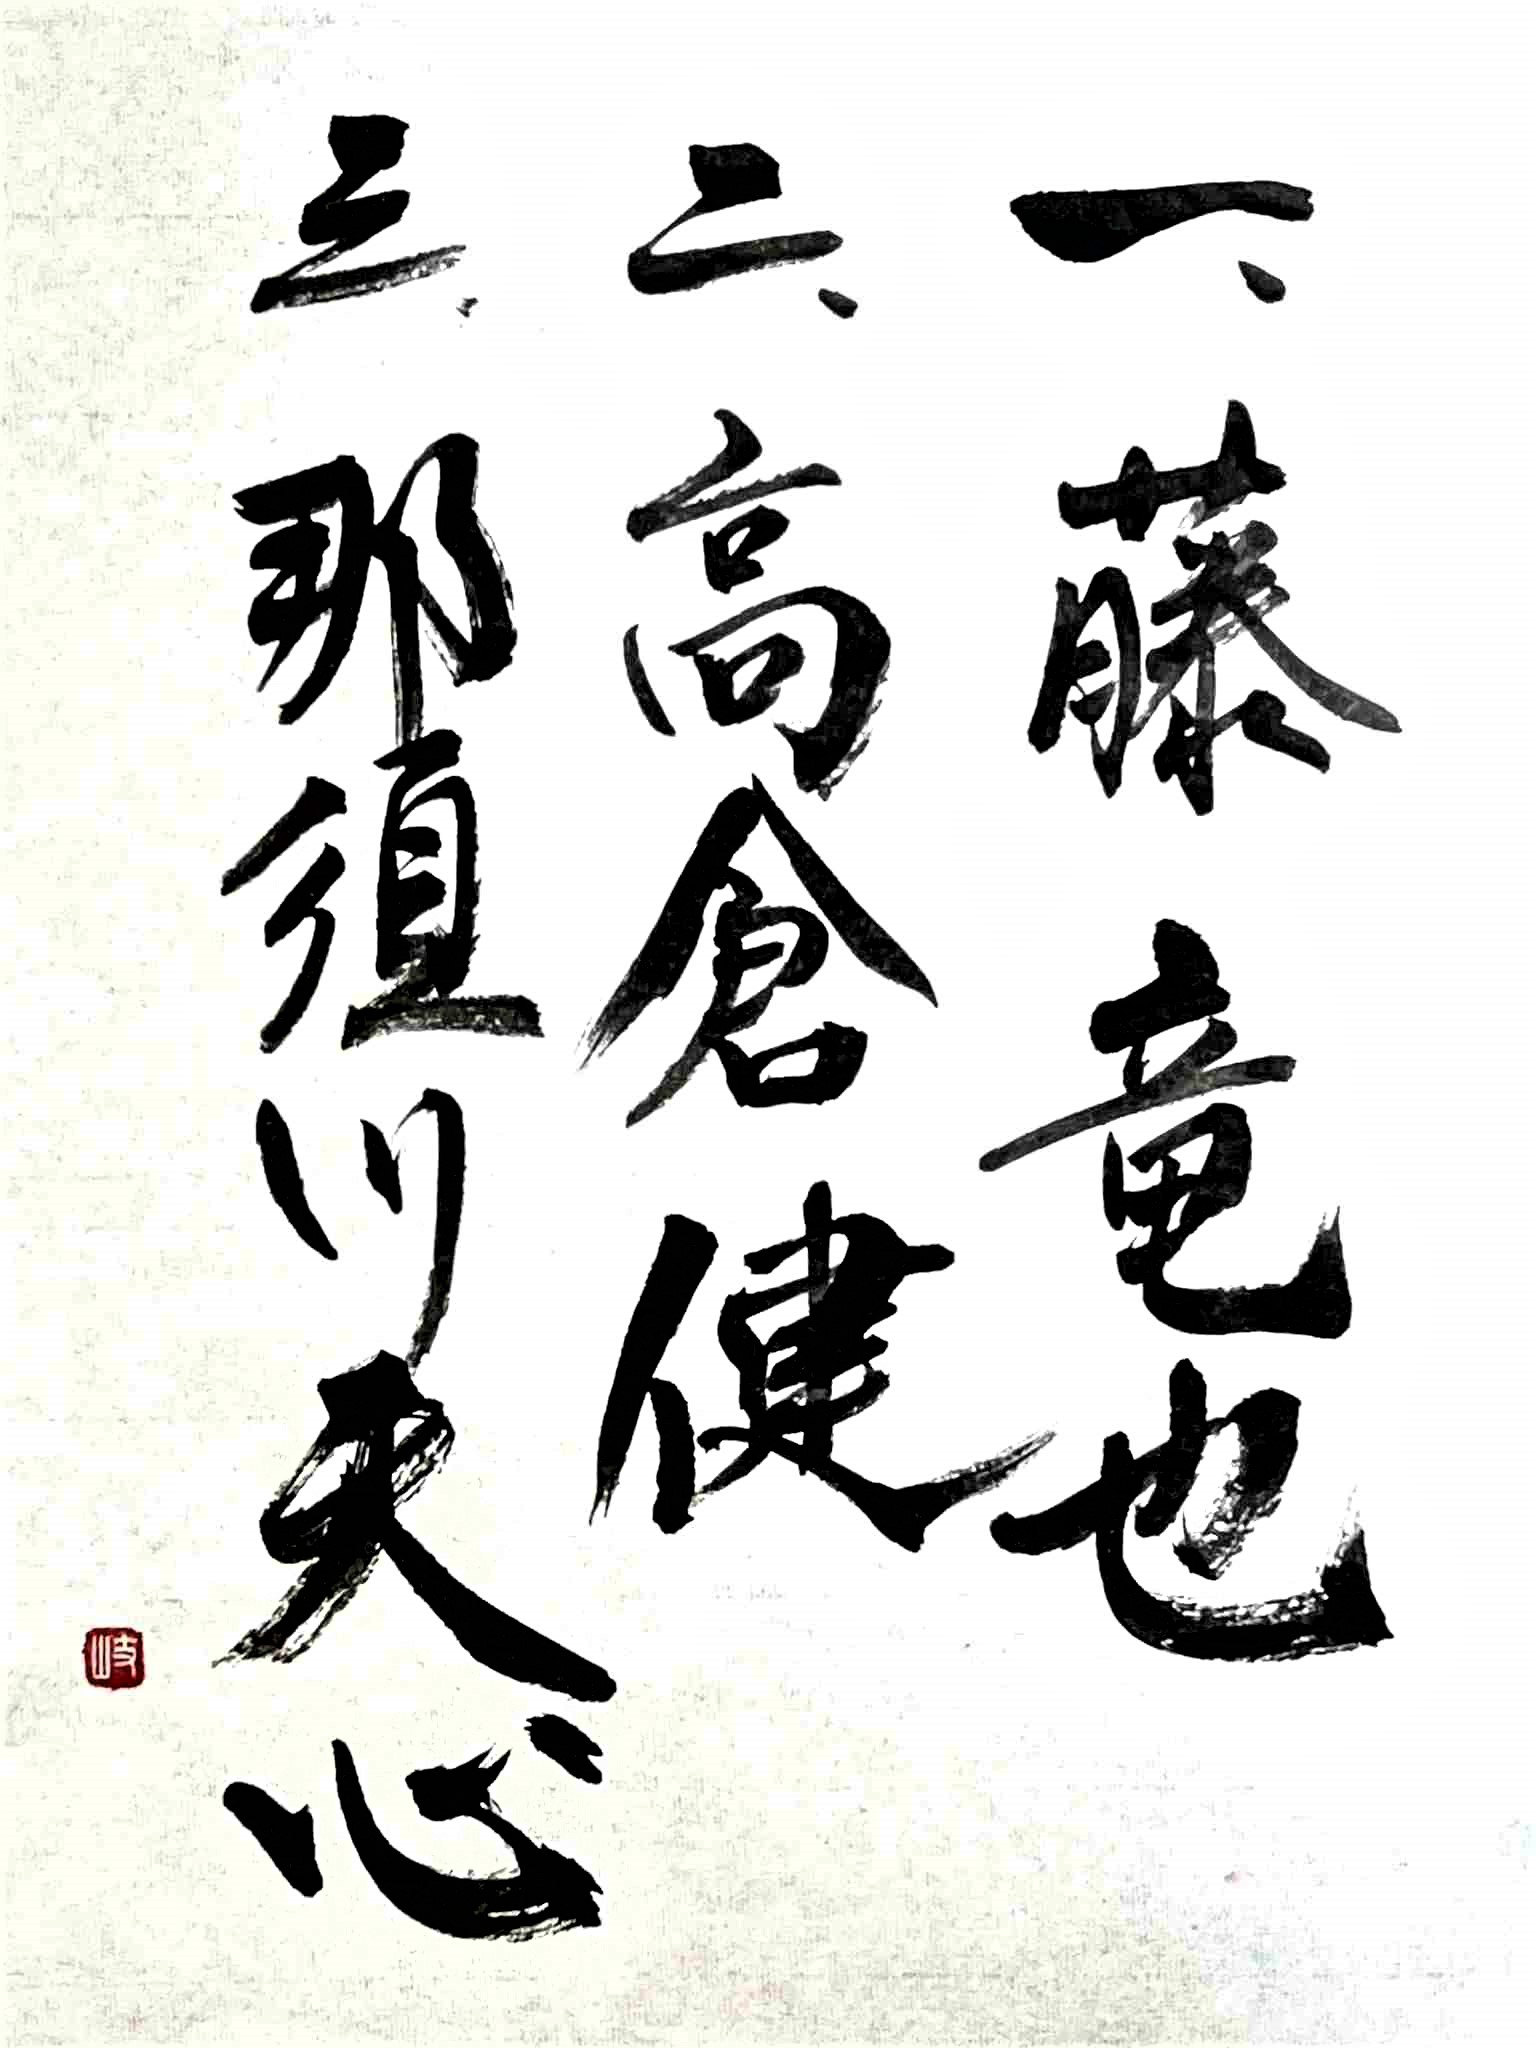 一、藤 竜也
二、高倉 健
三、那須川天心
岐